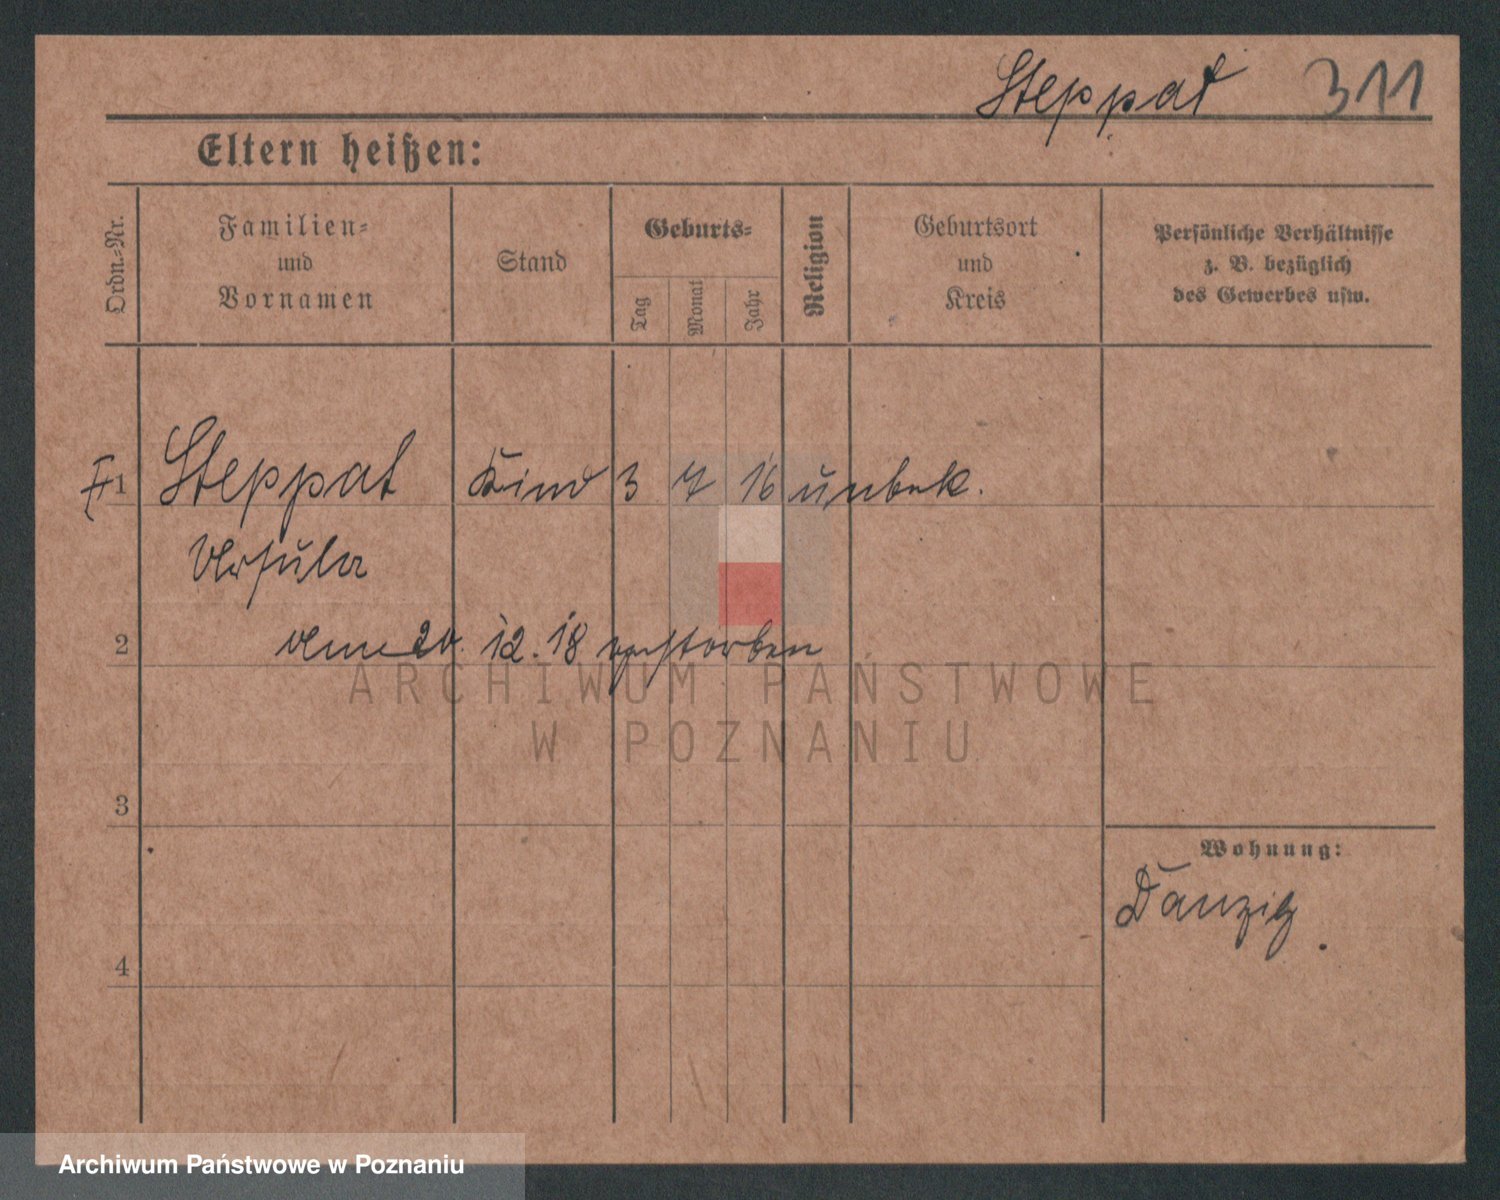 Steppat 311
Eltern heißen:
Ordn.-Nr.
Familien-
und
Vornamen
Stand
Geburts-
Tag
Monat
Jahr
Religion
Geburtsort
und
Kreis
Persönliche Verhältnisse
z. B. bezüglich
des Gewerbes usw.
1 Steppat Kind 3 7 16 unbek.
Ursula
am 20. 12. 18 verstorben
2
ARCHIWUM PAŃSTWOWE
W POZNANIU
3
Wohnung:
Danzig.
4
Archiwum Państwowe w Poznaniu